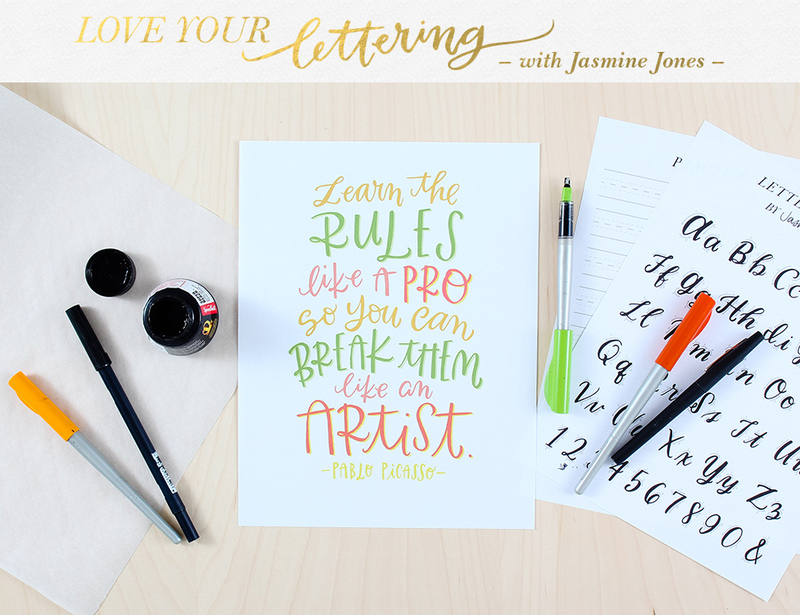 LOVE YOUR lettering
– with Jasmine Jones –
Learn the
RULES
like A PRO
so you can
BREAK THEM
like an
ARTiST.
–PABLO PiCASSO–
BY
Aa Bb Cc
Ff Gg Hh
Ll
Nn Oo
Qq Rr Ss Tt Uu
Vv
Xx Yy Zz
1 2
4 5 6 7 8 9 0 &